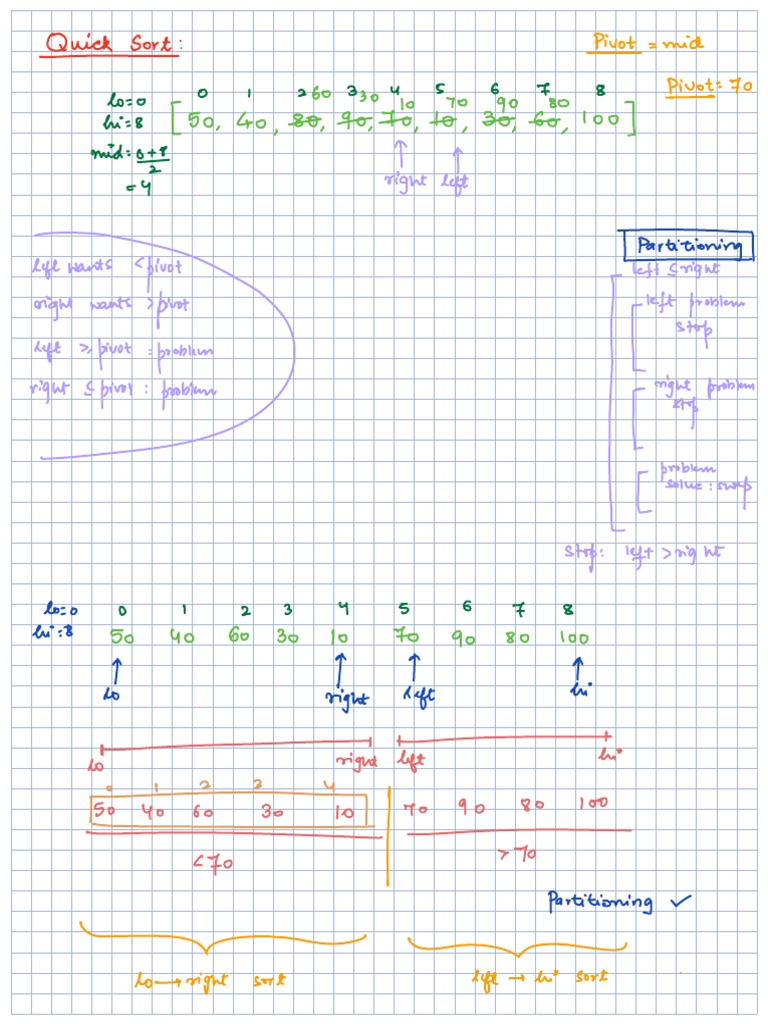 Quick Sort:
Pivot = mid
Pivot = 70
lo=0
hi=8
mid = 0+8
2
= 4
0 1 2 3 4 5 6 7 8
60 30 10 70 90 80
[50, 40, 80, 90, 70, 10, 30, 60, 100]
right left
left wants < pivot
right wants > pivot
left ≥ pivot : problem
right ≤ pivot : problem
Partitioning
left ≤ right
left problem
stop
right problem
stop
problem
solve : swap
stop: left > right
lo=0
hi=8
0 1 2 3 4 5 6 7 8
50 40 60 30 10 70 90 80 100
lo right left hi
lo right left hi
0 1 2 3 4
50 40 60 30 10 70 90 80 100
<70
>70
Partitioning ✓
lo → right sort
left → hi sort